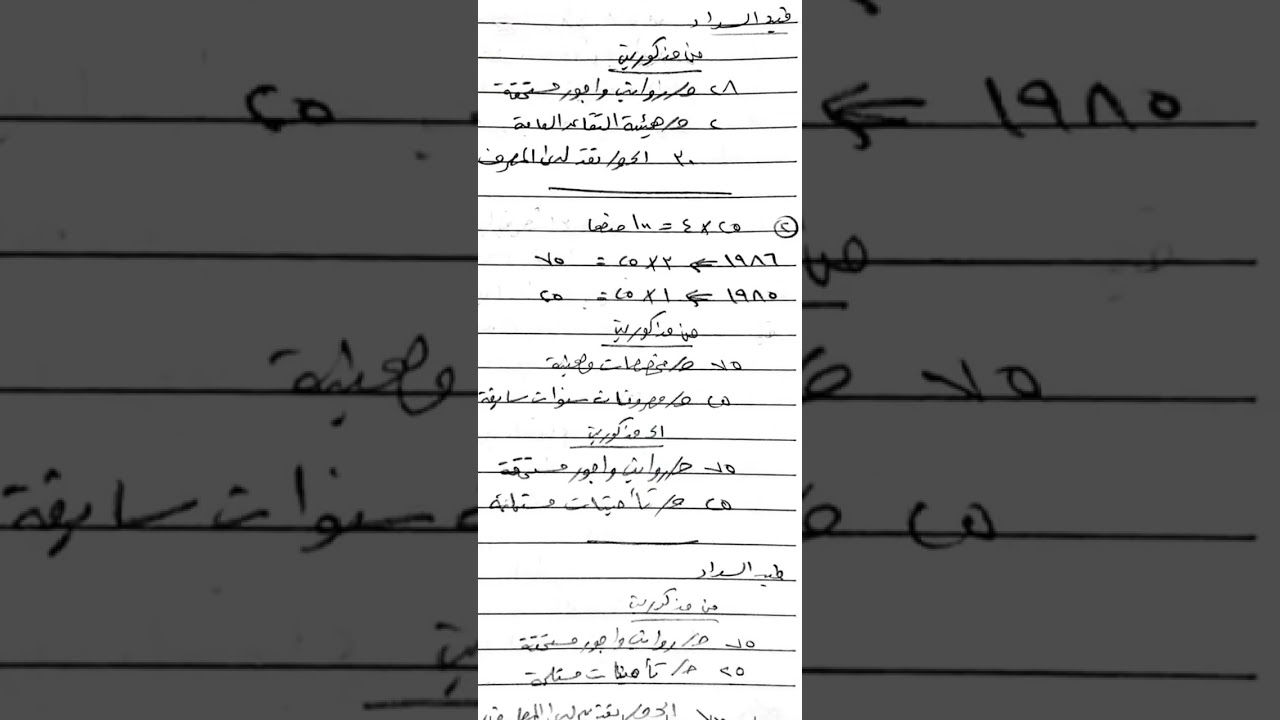 قيد السداد
من مذكورين
٢٨ ح/ رواتب واجور مستحقة
٢ ح/ هيئة التقاعد العامة
٣٠ الى ح/ نقد لدى المصرف
② ٢٥ × ٤ = ١٠٠ منها
١٩٨٦ ← ٣ × ٢٥ = ٧٥
١٩٨٥ ← ١ × ٢٥ = ٢٥
من مذكورين
٧٥ ح/ مخصصات مهنية
٢٥ ح/ مصروفات سنوات سابقة
الى مذكورين
٧٥ ح/ رواتب واجور مستحقة
٢٥ ح/ تأمينات مستلمة
قيد السداد
من مذكورين
٧٥ ح/ رواتب واجور مستحقة
٢٥ ح/ تأمينات مستلمة
الى ح/ نقد لدى المصرف